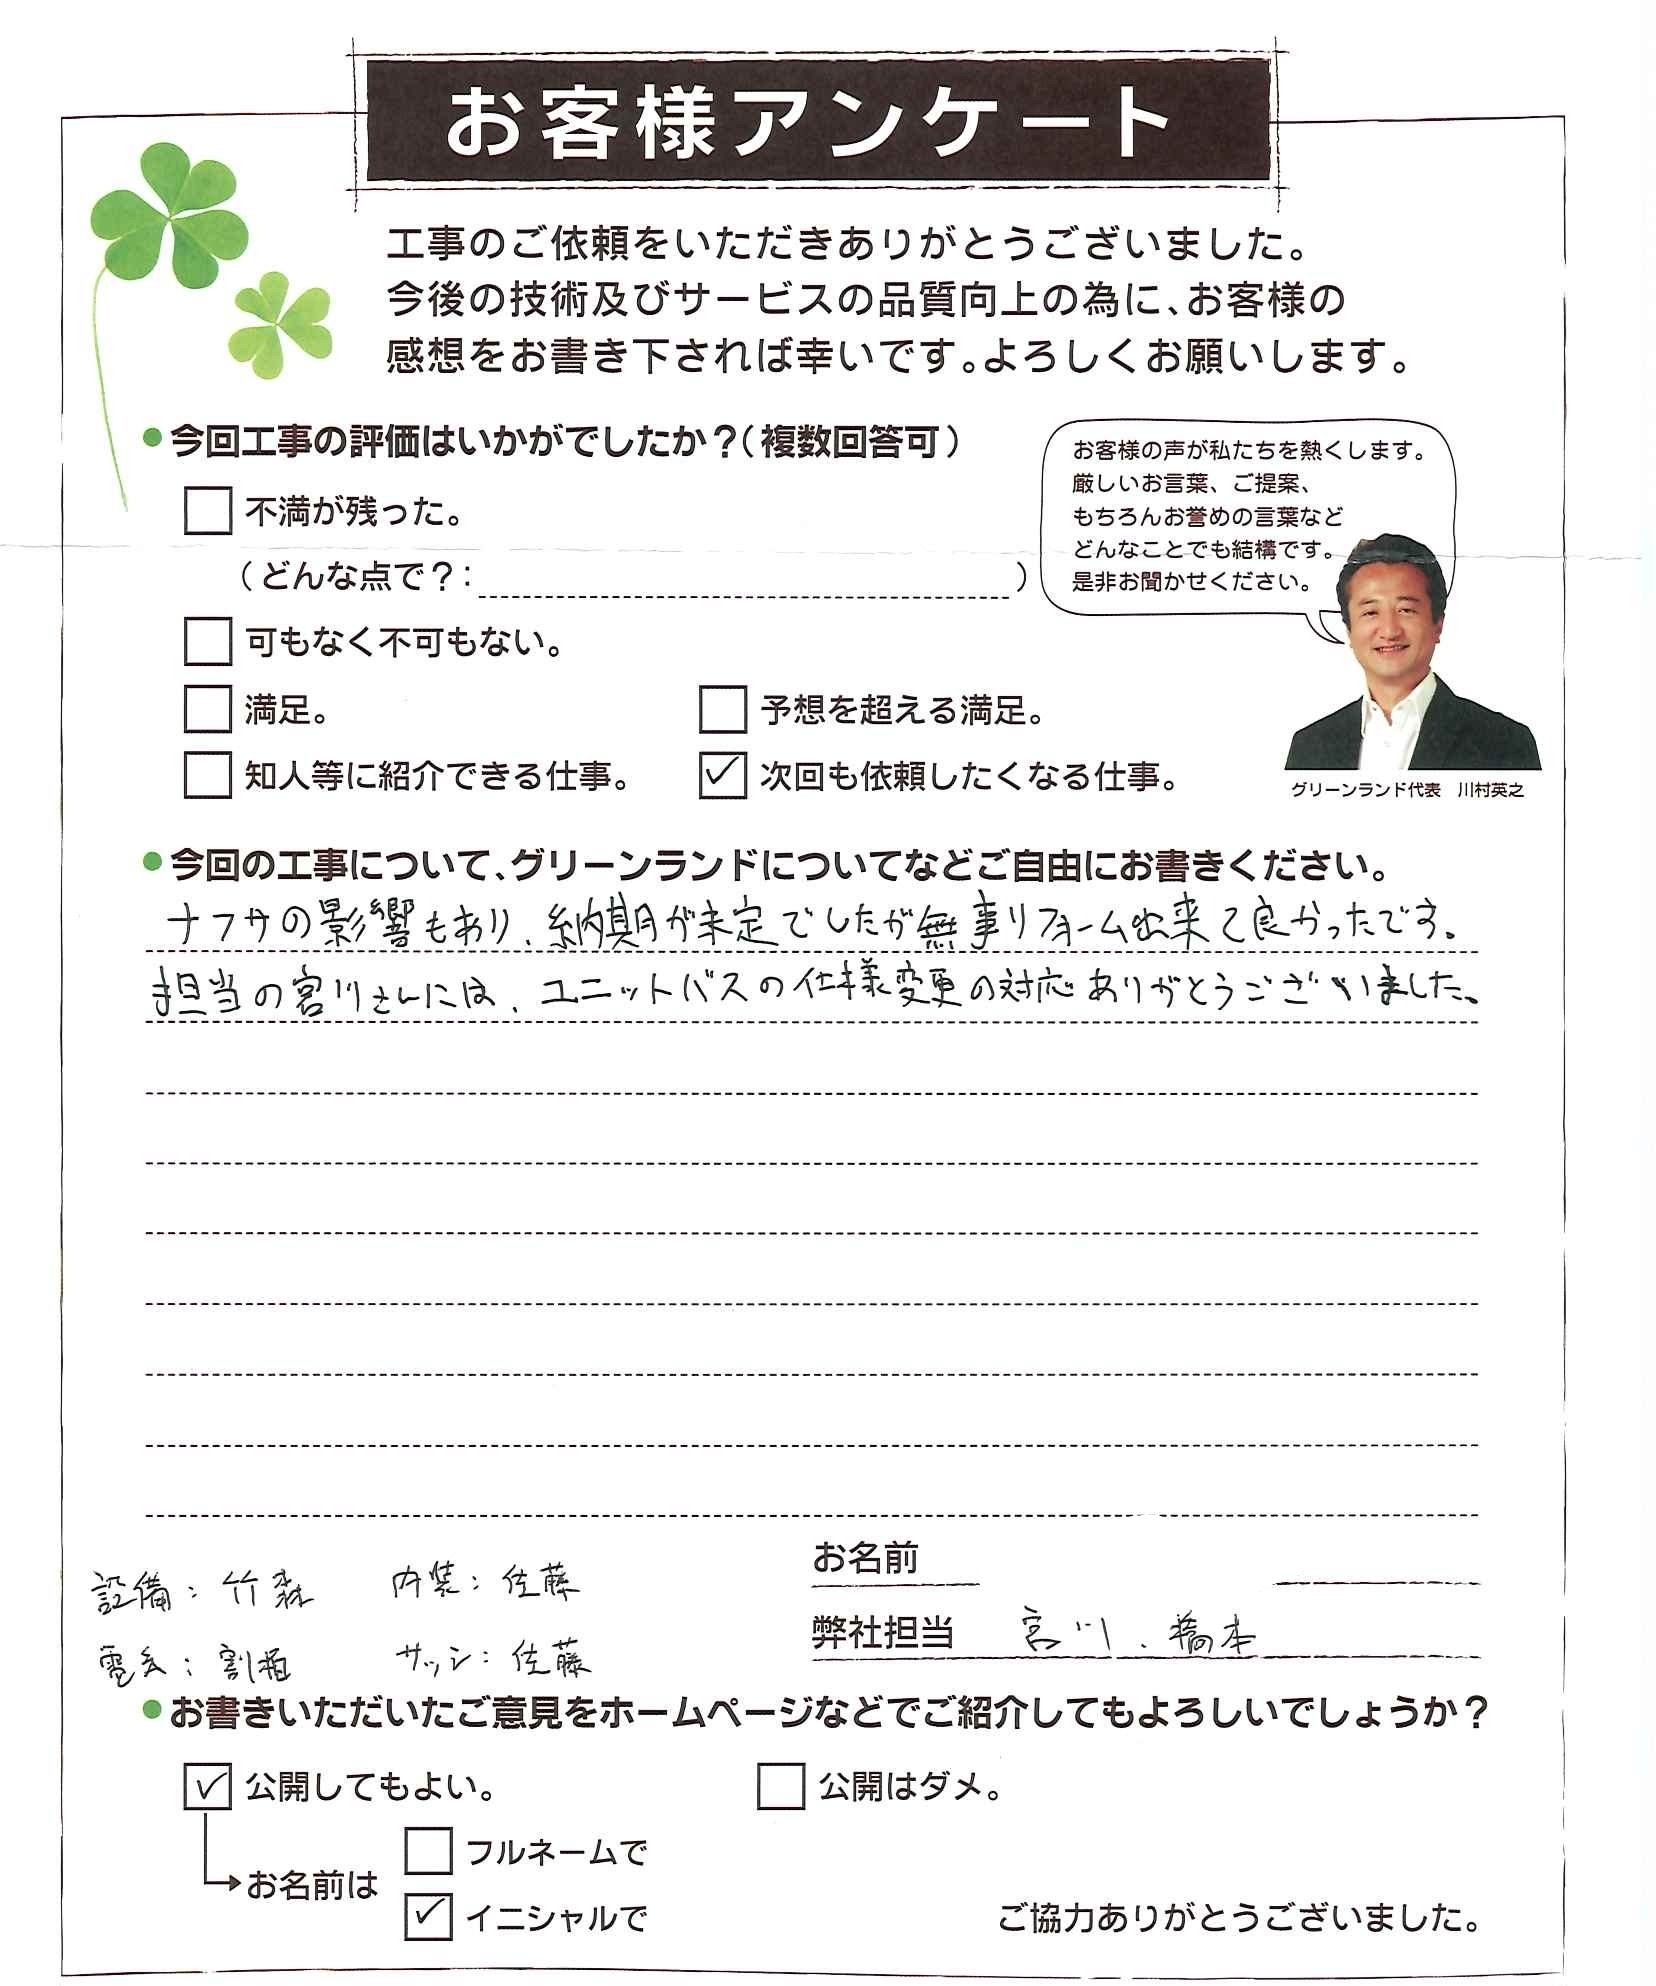 お客様アンケート
工事のご依頼をいただきありがとうございました。
今後の技術及びサービスの品質向上の為に、お客様の
感想をお書き下されば幸いです。よろしくお願いします。
●今回工事の評価はいかがでしたか？（複数回答可）
お客様の声が私たちを熱くします。
厳しいお言葉、ご提案、
もちろんお誉めの言葉など
どんなことでも結構です。
是非お聞かせください。
グリーンランド代表　川村英之
□ 不満が残った。
（どんな点で？：　）
□ 可もなく不可もない。
□ 満足。　□ 予想を超える満足。
□ 知人等に紹介できる仕事。　☑ 次回も依頼したくなる仕事。
●今回の工事について、グリーンランドについてなどご自由にお書きください。
ナフサの影響もあり、納期が未定でしたが無事リフォーム出来て良かったです。
担当の宮川さんには、ユニットバスの仕様変更の対応ありがとうございました。
お名前
設備：竹森　内装：佐藤
弊社担当　宮川、橋本
電気：割栢　サッシ：佐藤
●お書きいただいたご意見をホームページなどでご紹介してもよろしいでしょうか？
☑ 公開してもよい。　□ 公開はダメ。
→お名前は　□ フルネームで
☑ イニシャルで
ご協力ありがとうございました。